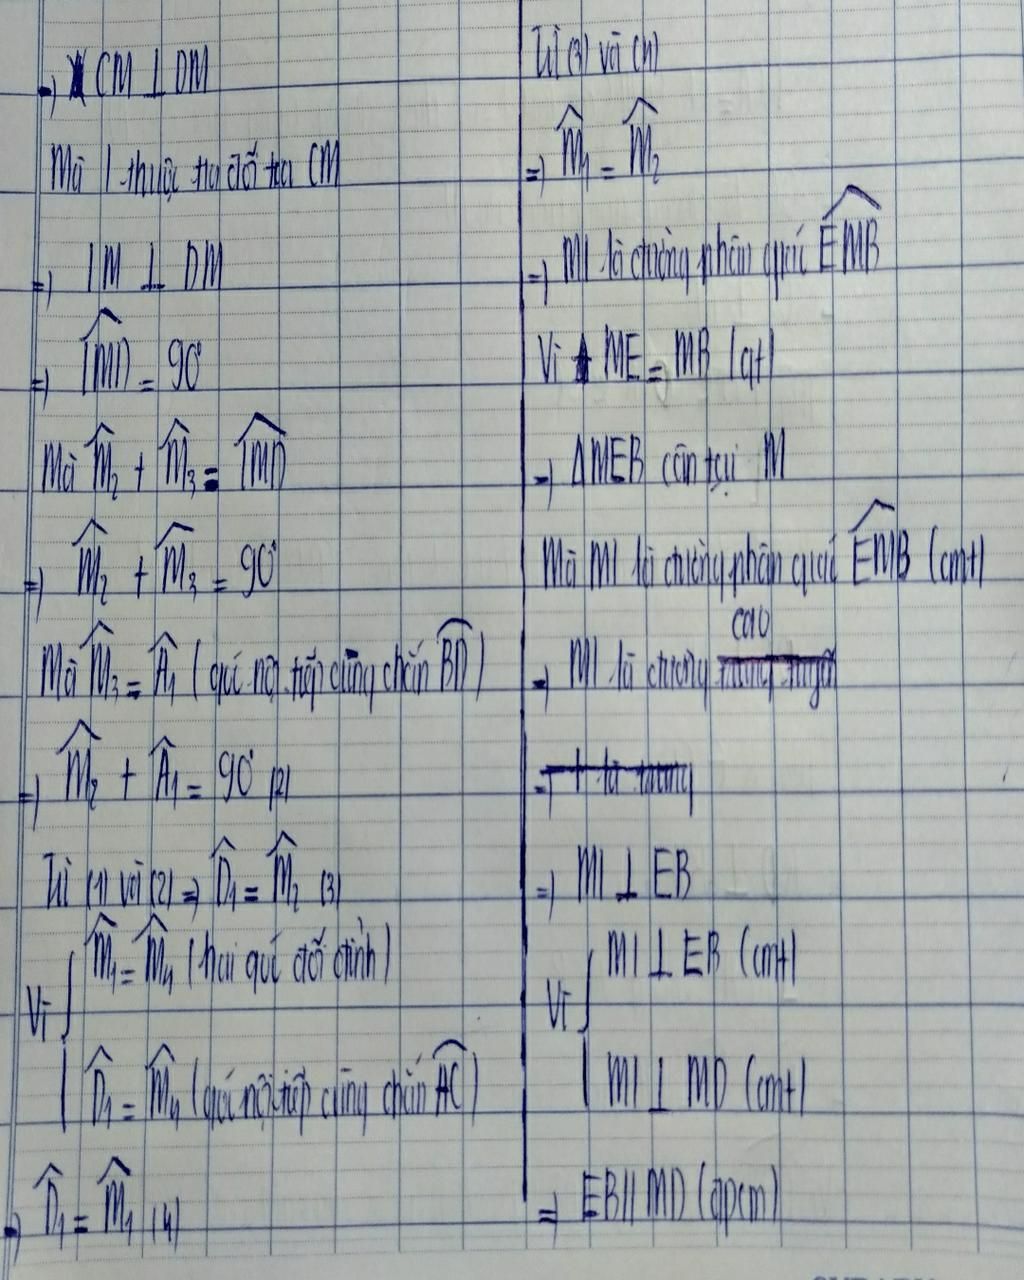 => CM ⊥ DM
Mà I thuộc tia đối tia CM
=> IM ⊥ DM
=> \widehat{IMD} = 90°
Mà \widehat{M}₂ + \widehat{M}₃ = \widehat{IMD}
=> \widehat{M}₂ + \widehat{M}₃ = 90°
Mà \widehat{M}₃ = \widehat{A}₁ (góc nội tiếp cùng chắn \overset{⌢}{BD})
=> \widehat{M}₂ + \widehat{A}₁ = 90° (2)
Từ (1) và (2) => \widehat{D}₁ = \widehat{M}₂ (3)
\widehat{M}₁ = \widehat{M}₄ (hai góc đối đỉnh)
Vì {
\widehat{D}₁ = \widehat{M}₄ (góc nội tiếp cùng chắn \overset{⌢}{AC})
=> \widehat{D}₁ = \widehat{M}₁ (4)
Từ (3) và (4)
=> \widehat{M}₁ = \widehat{M}₂
=> MI là đường phân giác \widehat{EMB}
Vì ME = MB (gt)
=> ΔMEB cân tại M
Mà MI là đường phân giác \widehat{EMB} (cmt)
=> MI là đường cao
=> I là trung
=> MI ⊥ EB
MI ⊥ EB (cmt)
Vì {
MI ⊥ MD (cmt)
=> EB // MD (đpcm)